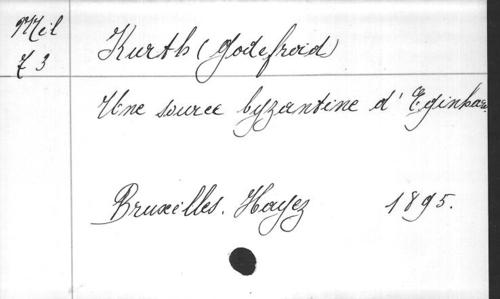 Mél
73
Kurth (Godefroid)
Une source byzantine d'Eginhar
Bruxelles. Hayez 1895.